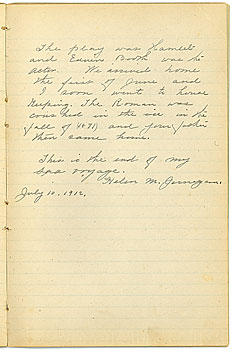 The play was Hamlet
and Edwin Booth was the
actor. We arrived home
the first of June and
I soon went to house
keeping. The Roman was
crushed in the ice in the
fall of 1871 and
then came home.
This is the end of my
sea voyage.
Helen M. Jernegan.
July 10, 1912.